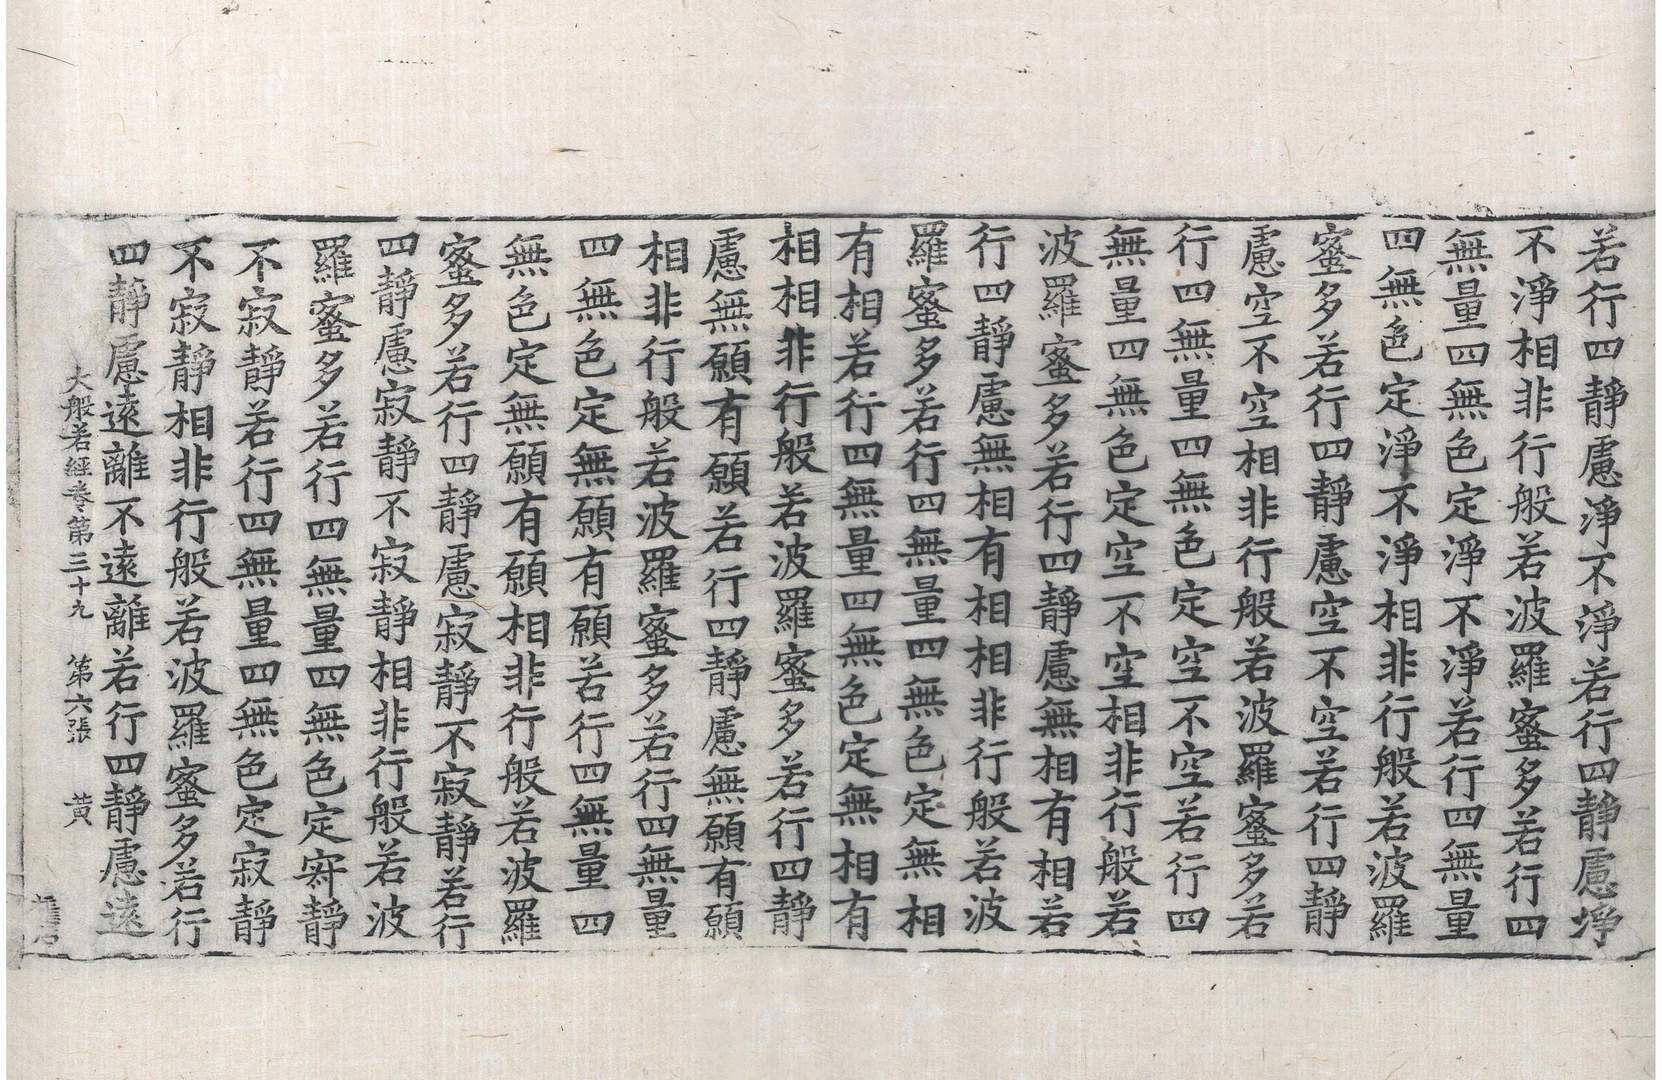 若行四靜慮淨不淨若行四靜慮淨
不淨相非行般若波羅蜜多若行四
無量四無色定淨不淨若行四無量
四無色定淨不淨相非行般若波羅
蜜多若行四靜慮空不空若行四靜
慮空不空相非行般若波羅蜜多若
行四無量四無色定空不空若行四
無量四無色定空不空相非行般若
波羅蜜多若行四靜慮無相有相若
行四靜慮無相有相相非行般若波
羅蜜多若行四無量四無色定無相
有相若行四無量四無色定無相有
相相非行般若波羅蜜多若行四靜
慮無願有願若行四靜慮無願有願
相非行般若波羅蜜多若行四無量
四無色定無願有願若行四無量四
無色定無願有願相非行般若波羅
蜜多若行四靜慮寂靜不寂靜若行
四靜慮寂靜不寂靜相非行般若波
羅蜜多若行四無量四無色定寂靜
不寂靜若行四無量四無色定寂靜
不寂靜相非行般若波羅蜜多若行
四靜慮遠離不遠離若行四靜慮遠
大般若經卷第三十九 第六張 黃